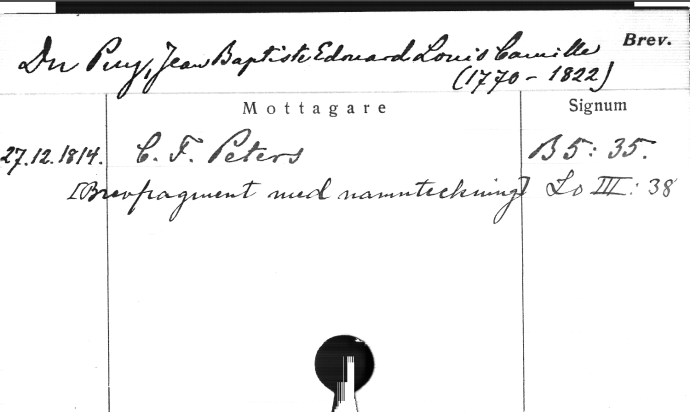 Du Puy, Jean Baptiste Edouard Louis Camille Brev.
(1770-1822)
Mottagare Signum
27.12.1814. C. F. Peters B 5: 35.
[Brevfragment med namnteckning] Lo III: 38